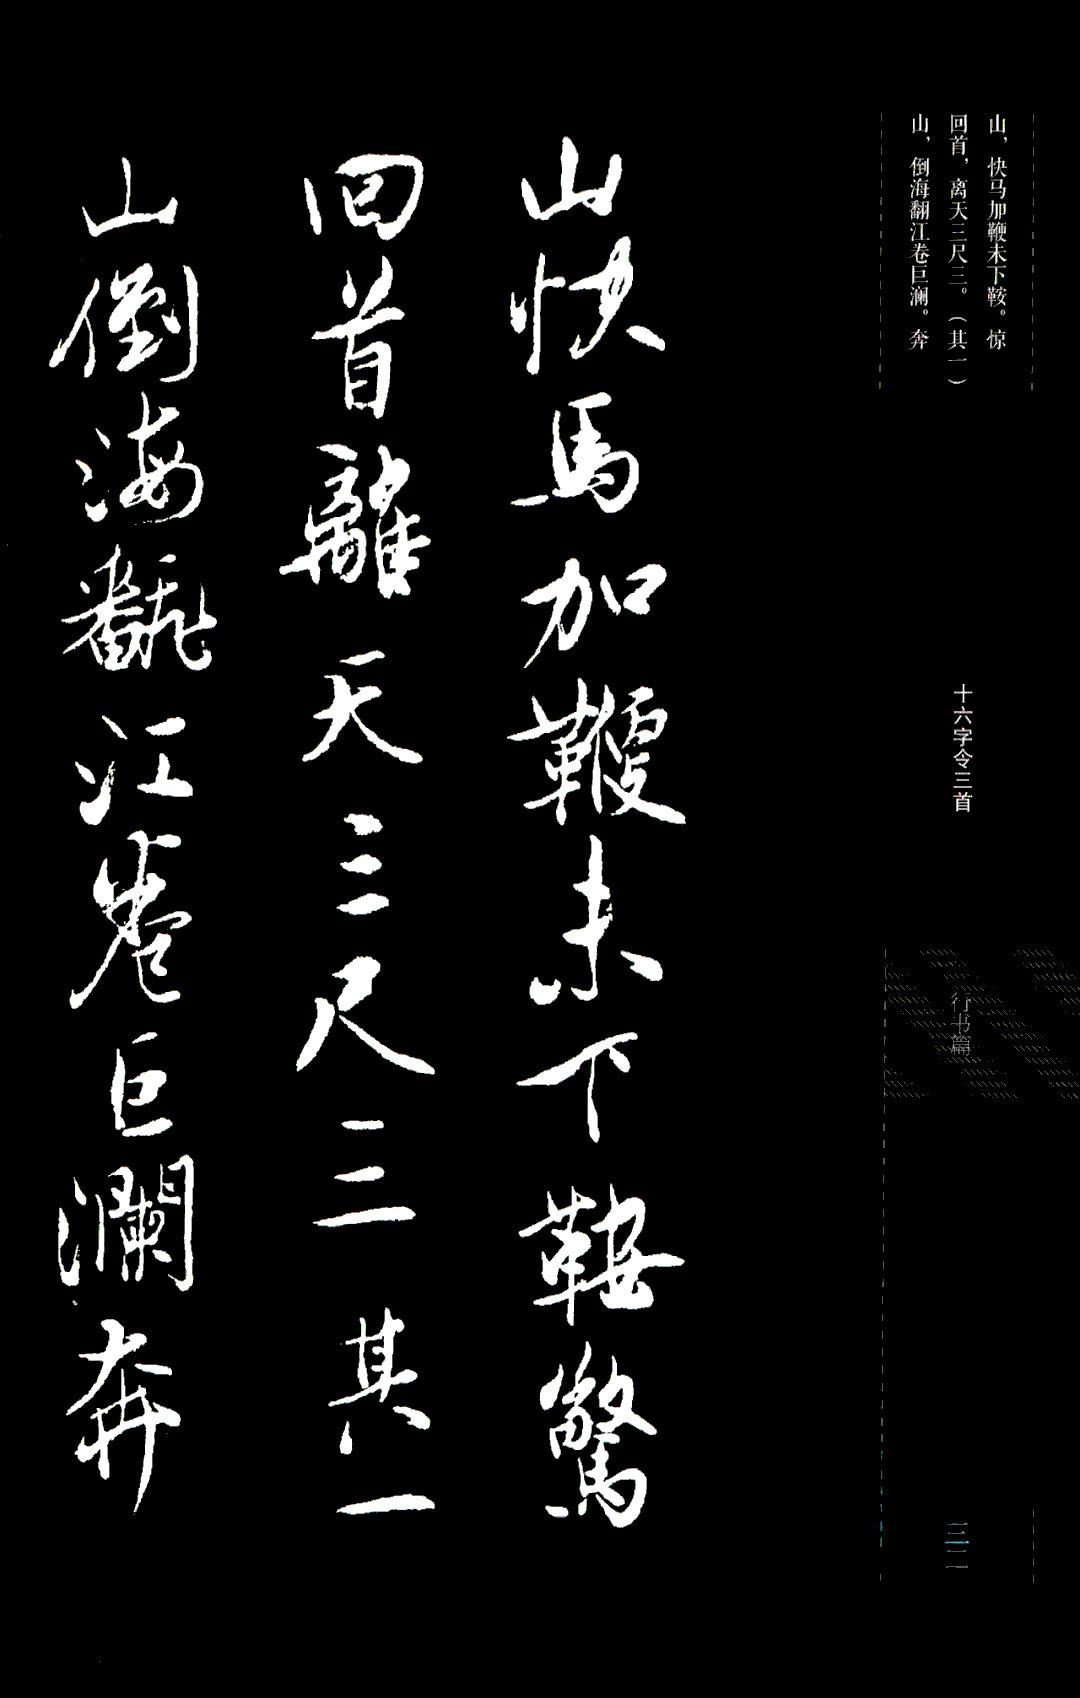 山，快马加鞭未下鞍。惊
回首，离天三尺三。（其一）
山，倒海翻江卷巨澜。奔
十六字令三首
行书篇
山快馬加鞭未下鞍驚
回首離天三尺三其一
山倒海翻江卷巨瀾奔